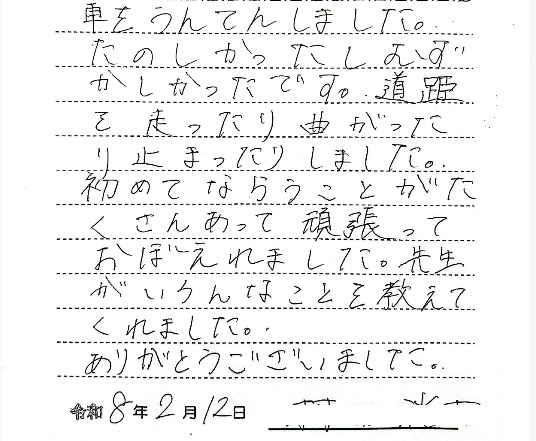 車をうんてんしました。
たのしかったしむず
かしかったです。道路
を走ったり曲がった
り止まったりしました。
初めてならうことがた
くさんあって頑張って
おぼえれました。先生
がいろんなことを教えて
くれました。
ありがとうございました。
令和8年2月12日